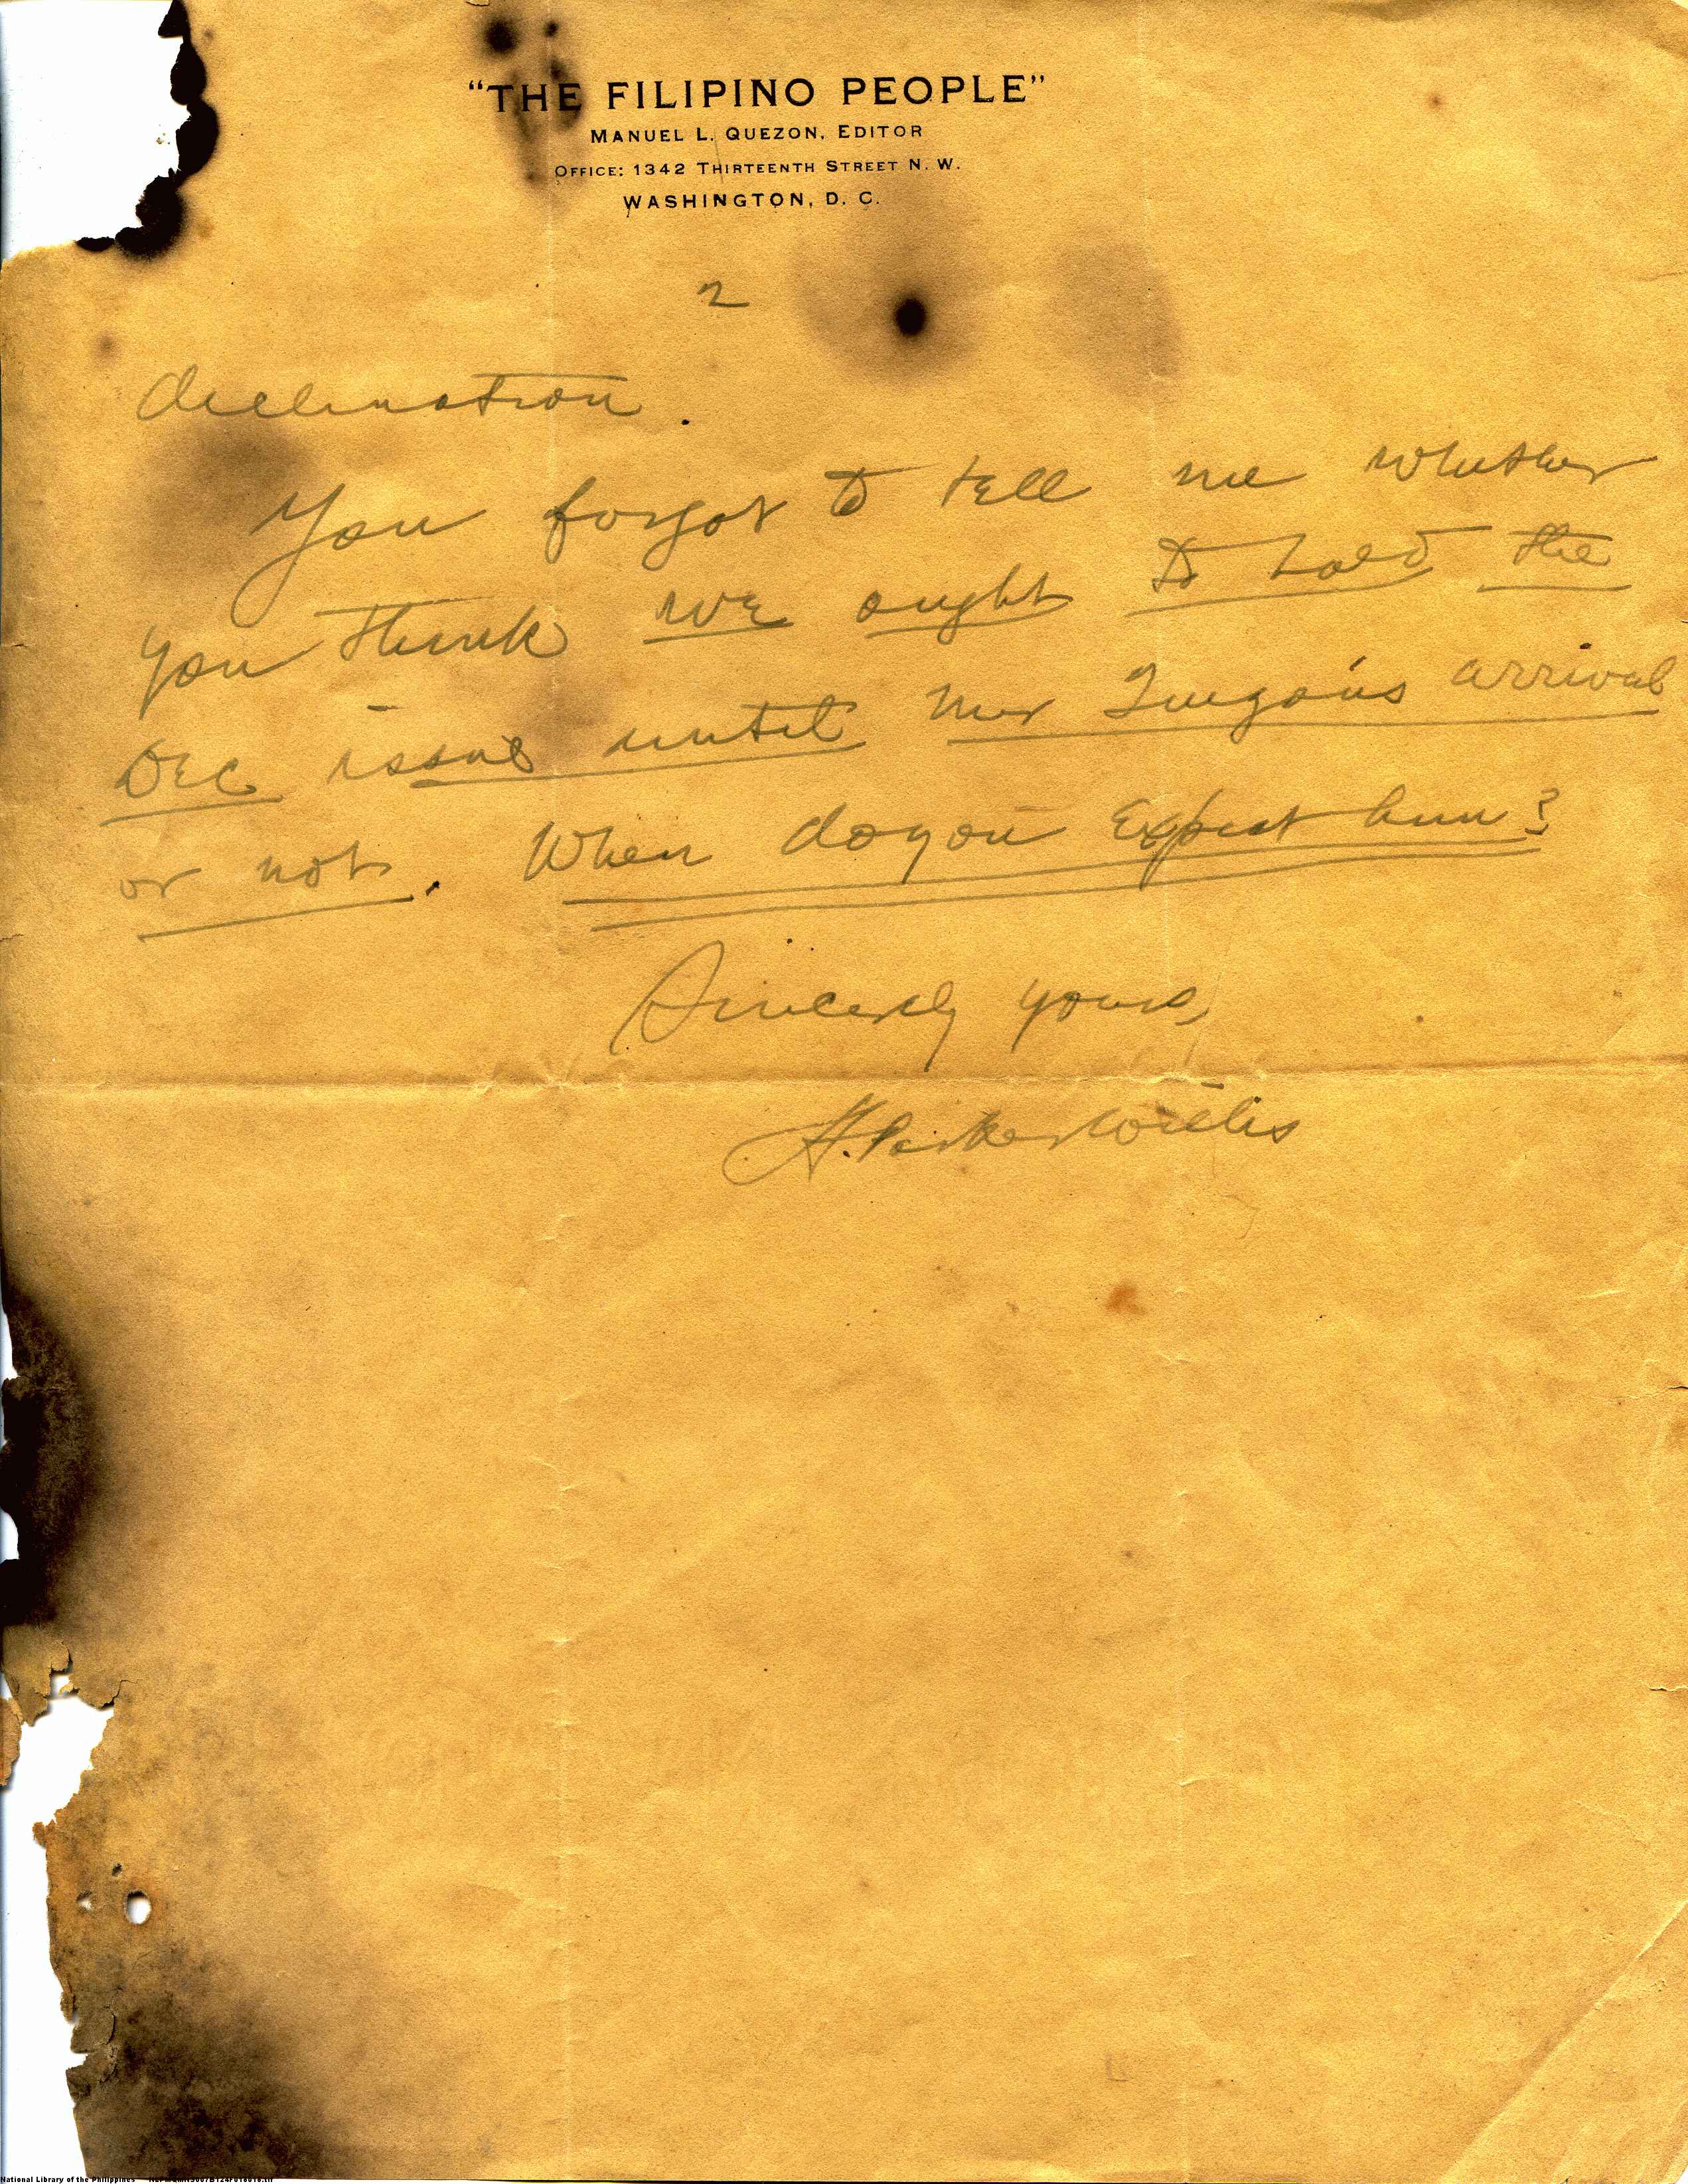 "THE FILIPINO PEOPLE"
MANUEL L. QUEZON, EDITOR
OFFICE: 1342 THIRTEENTH STREET N. W.
WASHINGTON, D. C.
2
declination.
You forgot to tell me whether
you think we ought to hold the
Dec issue until Mr Quezon's arrival
or not. When do you expect him?
Sincerely yours,
H. Parker Willis
National Library of the Philippines